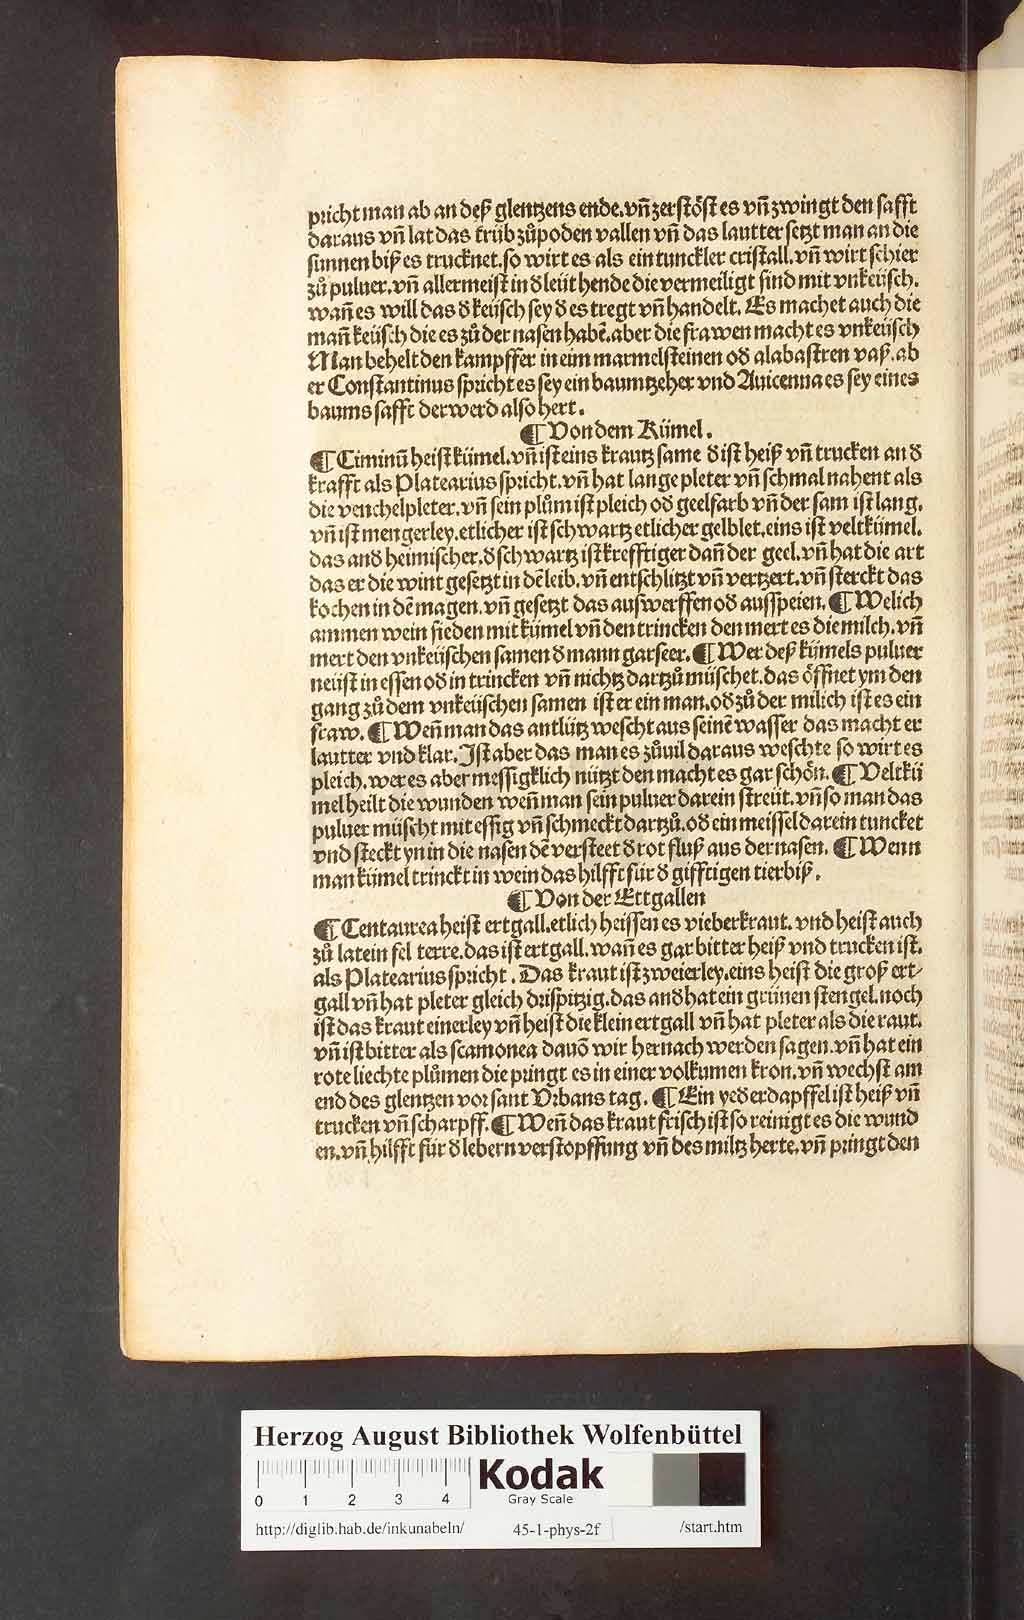 pricht man ab an deß glentzens ende. vñ zerstöst es vñ zwingt den safft
daraus vñ lat das trüb zů poden vallen vñ das lautter setzt man an die
sunnen biß es trucknet. so wirt es als ein tunckler cristall. vñ wirt schier
zů puluer. vñ allermeist in đ leüt hende die vermeiligt sind mit vnkeüsch.
wañ es will das đ keüsch sey đ es tregt vñ handelt. Es machet auch die
mañ keüsch die es zů der nasen habẽ. aber die frawen macht es vnkeüsch
Man behelt den kampffer in eim marmelsteinen ođ alabastren vaß. ab
er Constantinus spricht es sey ein baumtzeher vnd Auicenna es sey eines
baums safft der werd also hert.
¶ Von dem Kümel.
¶ Ciminũ heist kümel. vñ ist eins krautz same đ ist heiß vñ trucken an đ
krafft als Platearius spricht. vñ hat lange pleter vñ schmal nahent als
die venchelpleter. vñ sein plům ist pleich ođ geelfarb vñ der sam ist lang.
vñ ist mengerley. etlicher ist schwartz etlicher gelblet. eins ist veltkümel.
das anđ heimischer. đ schwartz ist krefftiger dañ der geel. vñ hat die art
das er die wint gesetzt in dẽ leib. vñ entschlitzt vñ vertzert. vñ sterckt das
kochen in dẽ magen. vñ gesetzt das auswerffen ođ ausspeien. ¶ Welich
ammen wein sieden mit kümel vñ den trincken den mert es die milch. vñ
mert den vnkeüschen samen đ mann gar seer. ¶ Wer deß kümels puluer
neüst in essen ođ in trincken vñ nichtz dartzů müschet. das öffnet ym den
gang zů dem vnkeüschen samen ist er ein man. ođ zů der milich ist es ein
fraw. ¶ Weñ man das antlütz wescht aus seinẽ wasser das macht er
lautter vnd klar. Ist aber das man es zůuil daraus weschte so wirt es
pleich. wer es aber messigklich nützt den macht es gar schön. ¶ Veltkü
mel heilt die wunden weñ man sein puluer darein streüt. vñ so man das
puluer müscht mit essig vñ schmeckt dartzů. ođ ein meissel darein tuncket
vnd steckt yn in die nasen dẽ versteet đ rot fluß aus der nasen. ¶ Wenn
man kümel trinckt in wein das hilfft für đ gifftigen tier biß.
¶ Von der Ettgallen
¶ Centaurea heist ertgall. etlich heissen es vieberkraut. vnd heist auch
zů latein fel terre. das ist ertgall. wañ es gar bitter heiß vnd trucken ist.
als Platearius spricht. Das kraut ist zweierley. eins heist die groß ert-
gall vñ hat pleter gleich drispitzig. das anđ hat ein grünen stengel. noch
ist das kraut einerley vñ heist die klein ertgall vñ hat pleter als die raut.
vñ ist bitter als scamonea dauõ wir hernach werden sagen. vñ hat ein
rote liechte plůmen die pringt es in einer volkumen kron. vñ wechst am
end des glentzen vor sant Vrbans tag. ¶ Ein yeđ erdapffel ist heiß vñ
trucken vñ scharpff. ¶ Weñ das kraut frisch ist so reinigt es die wund
en. vñ hilfft für đ lebern verstopffung vñ des miltz herte. vñ pringt den
Herzog August Bibliothek Wolfenbüttel
0 1 2 3 4
Kodak
Gray Scale
http://diglib.hab.de/inkunabeln/ 45-1-phys-2f /start.htm